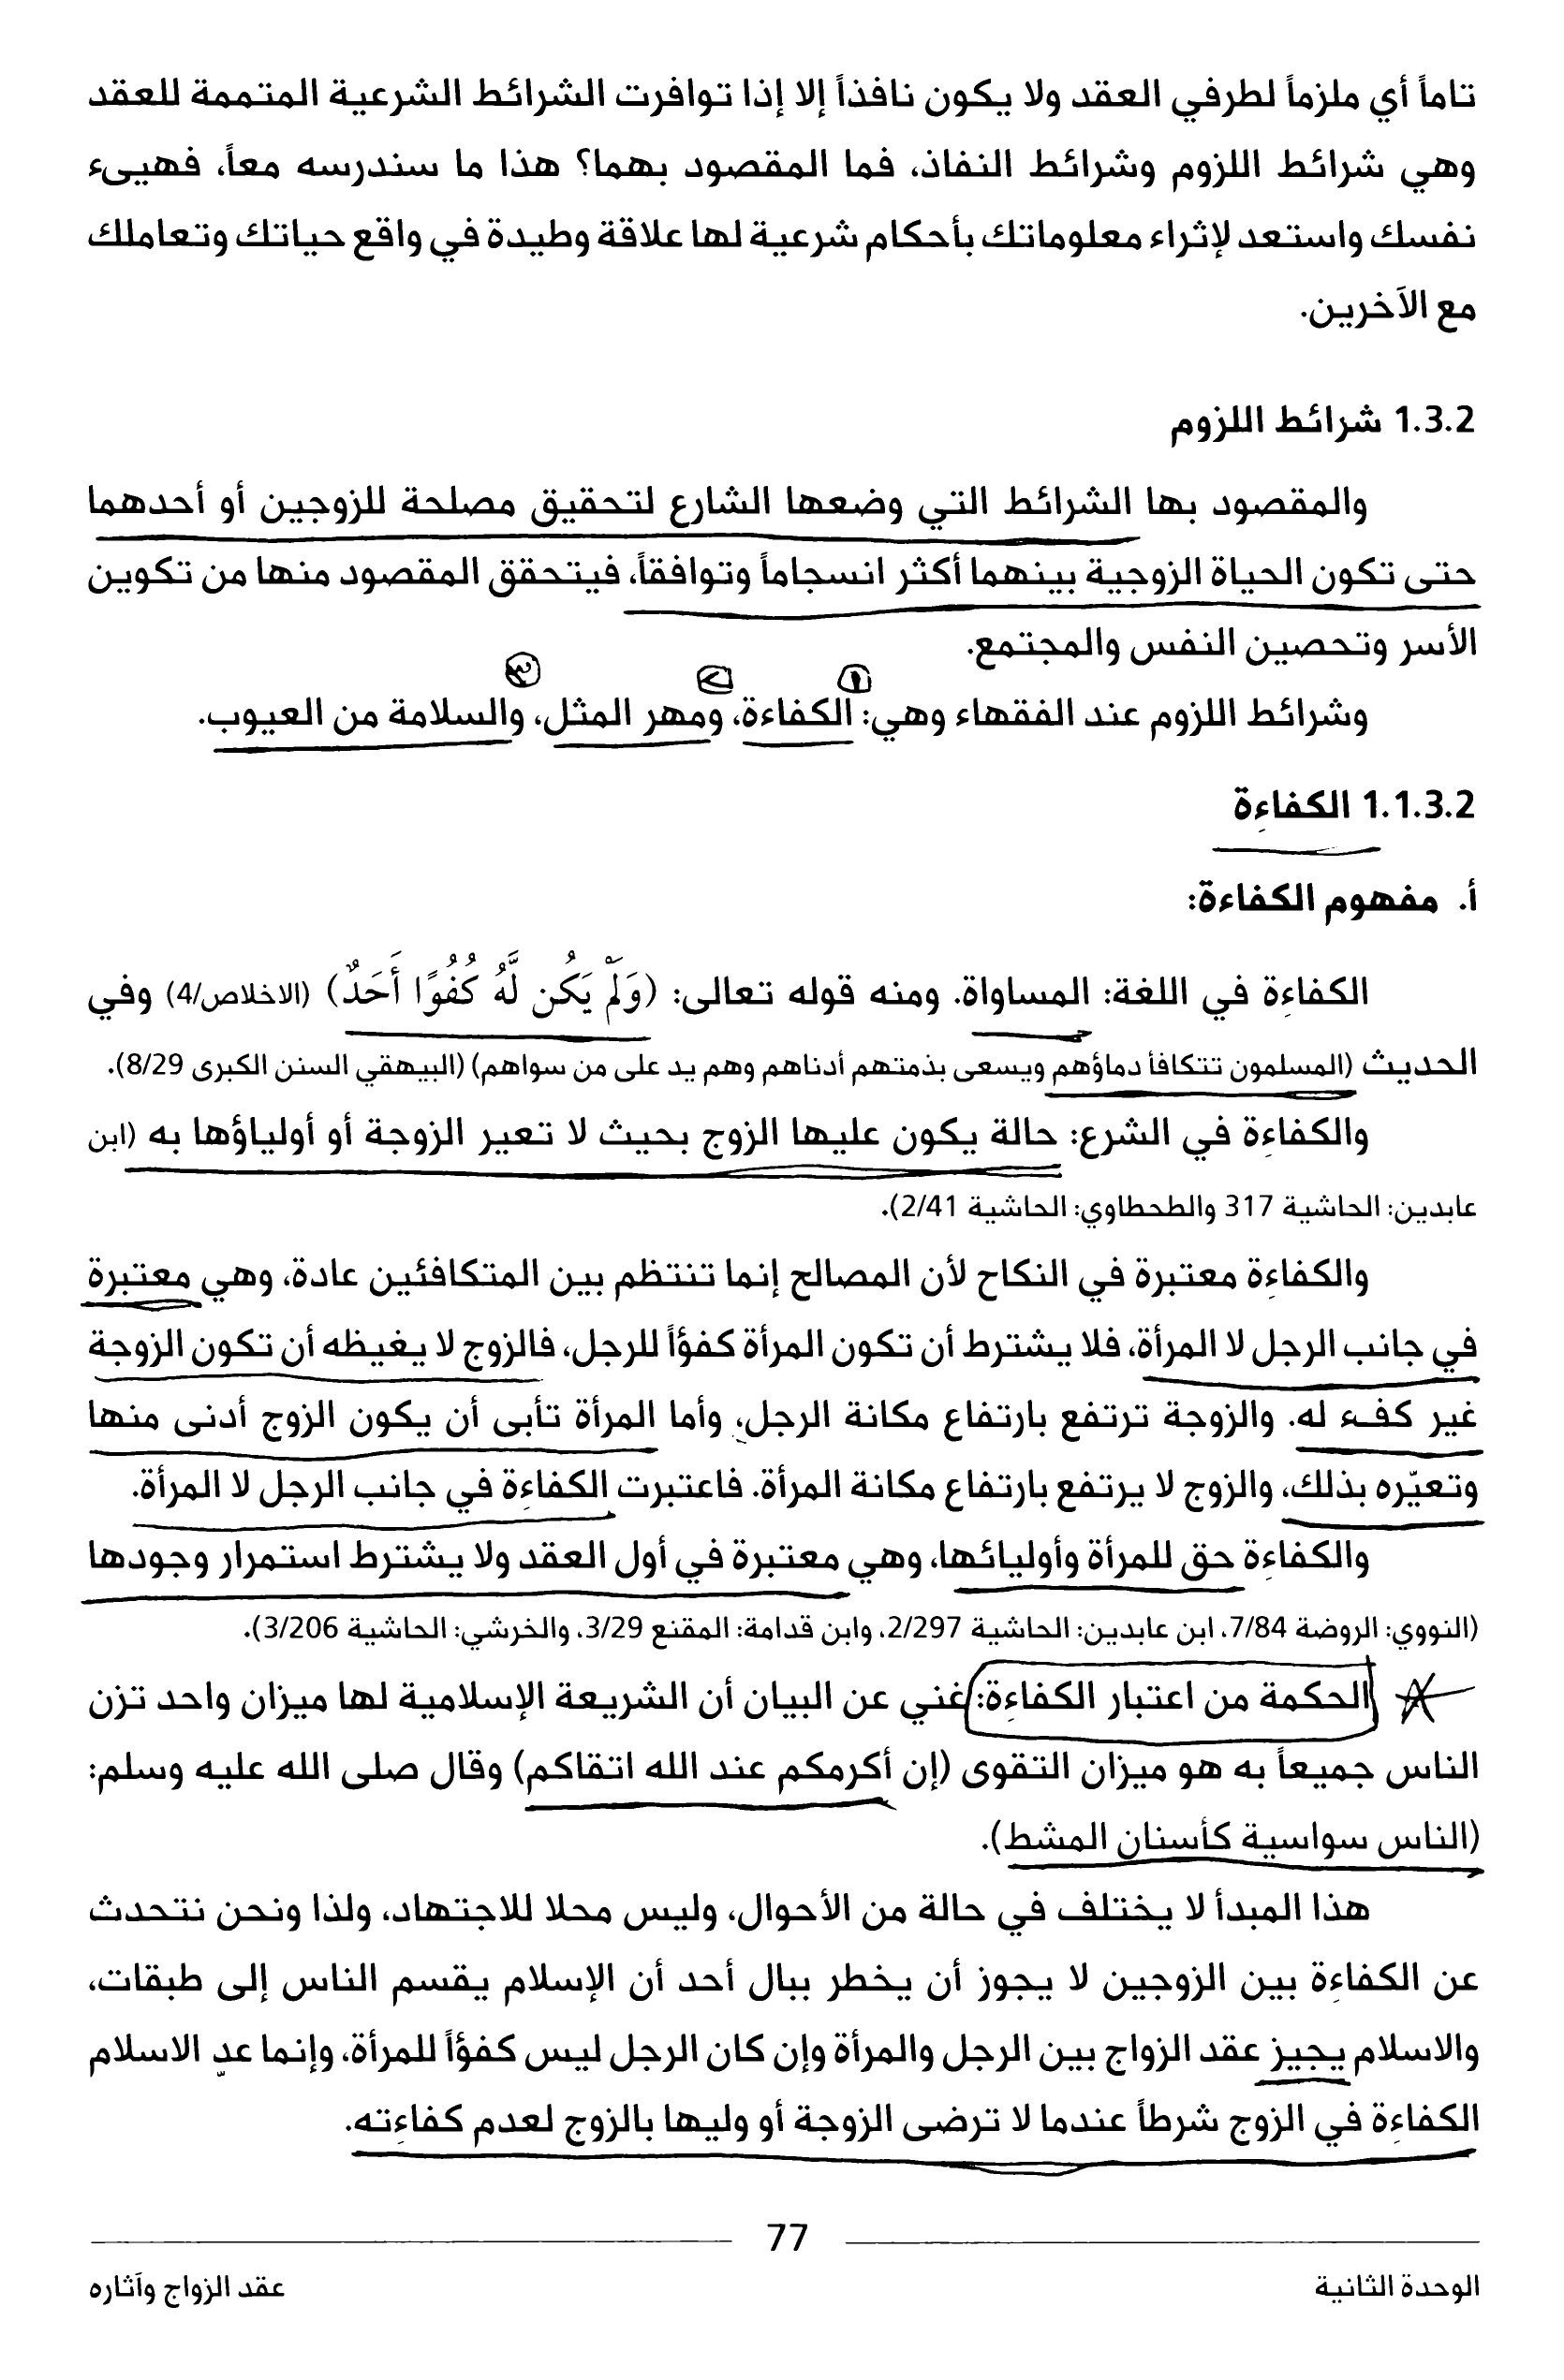 تاماً أي ملزماً لطرفي العقد ولا يكون نافذاً إلا إذا توافرت الشرائط الشرعية المتممة للعقد
وهي شرائط اللزوم وشرائط النفاذ، فما المقصود بهما؟ هذا ما سندرسه معاً، فهيىء
نفسك واستعد لإثراء معلوماتك بأحكام شرعية لها علاقة وطيدة في واقع حياتك وتعاملك
مع الآخرين.
1.3.2 شرائط اللزوم
والمقصود بها الشرائط التي وضعها الشارع لتحقيق مصلحة للزوجين أو أحدهما
حتى تكون الحياة الزوجية بينهما أكثر انسجاماً وتوافقاً، فيتحقق المقصود منها من تكوين
الأسر وتحصين النفس والمجتمع.
١ ٢ ٣
وشرائط اللزوم عند الفقهاء وهي: الكفاءة، ومهر المثل، والسلامة من العيوب.
1.1.3.2 الكفاءة
أ. مفهوم الكفاءة:
الكفاءة في اللغة: المساواة. ومنه قوله تعالى: (وَلَمْ يَكُن لَّهُ كُفُوًا أَحَدٌ) (الاخلاص/4) وفي
الحديث (المسلمون تتكافأ دماؤهم ويسعى بذمتهم أدناهم وهم يد على من سواهم) (البيهقي السنن الكبرى 8/29).
والكفاءة في الشرع: حالة يكون عليها الزوج بحيث لا تعير الزوجة أو أولياؤها به (ابن
عابدين: الحاشية 317 والطحطاوي: الحاشية 2/41).
والكفاءة معتبرة في النكاح لأن المصالح إنما تنتظم بين المتكافئين عادة، وهي معتبرة
في جانب الرجل لا المرأة، فلا يشترط أن تكون المرأة كفؤاً للرجل، فالزوج لا يغيظه أن تكون الزوجة
غير كفء له. والزوجة ترتفع بارتفاع مكانة الرجل، وأما المرأة تأبى أن يكون الزوج أدنى منها
وتعيّره بذلك، والزوج لا يرتفع بارتفاع مكانة المرأة. فاعتبرت الكفاءة في جانب الرجل لا المرأة.
والكفاءة حق للمرأة وأوليائها، وهي معتبرة في أول العقد ولا يشترط استمرار وجودها
(النووي: الروضة 7/84، ابن عابدين: الحاشية 2/297، وابن قدامة: المقنع 3/29، والخرشي: الحاشية 3/206).
الحكمة من اعتبار الكفاءة: غني عن البيان أن الشريعة الإسلامية لها ميزان واحد تزن
الناس جميعاً به هو ميزان التقوى (إن أكرمكم عند الله اتقاكم) وقال صلى الله عليه وسلم:
(الناس سواسية كأسنان المشط).
هذا المبدأ لا يختلف في حالة من الأحوال، وليس محلا للاجتهاد، ولذا ونحن نتحدث
عن الكفاءة بين الزوجين لا يجوز أن يخطر ببال أحد أن الإسلام يقسم الناس إلى طبقات،
والاسلام يجيز عقد الزواج بين الرجل والمرأة وإن كان الرجل ليس كفؤاً للمرأة، وإنما عدّ الاسلام
الكفاءة في الزوج شرطاً عندما لا ترضى الزوجة أو وليها بالزوج لعدم كفاءته.
77
الوحدة الثانية
عقد الزواج وآثاره